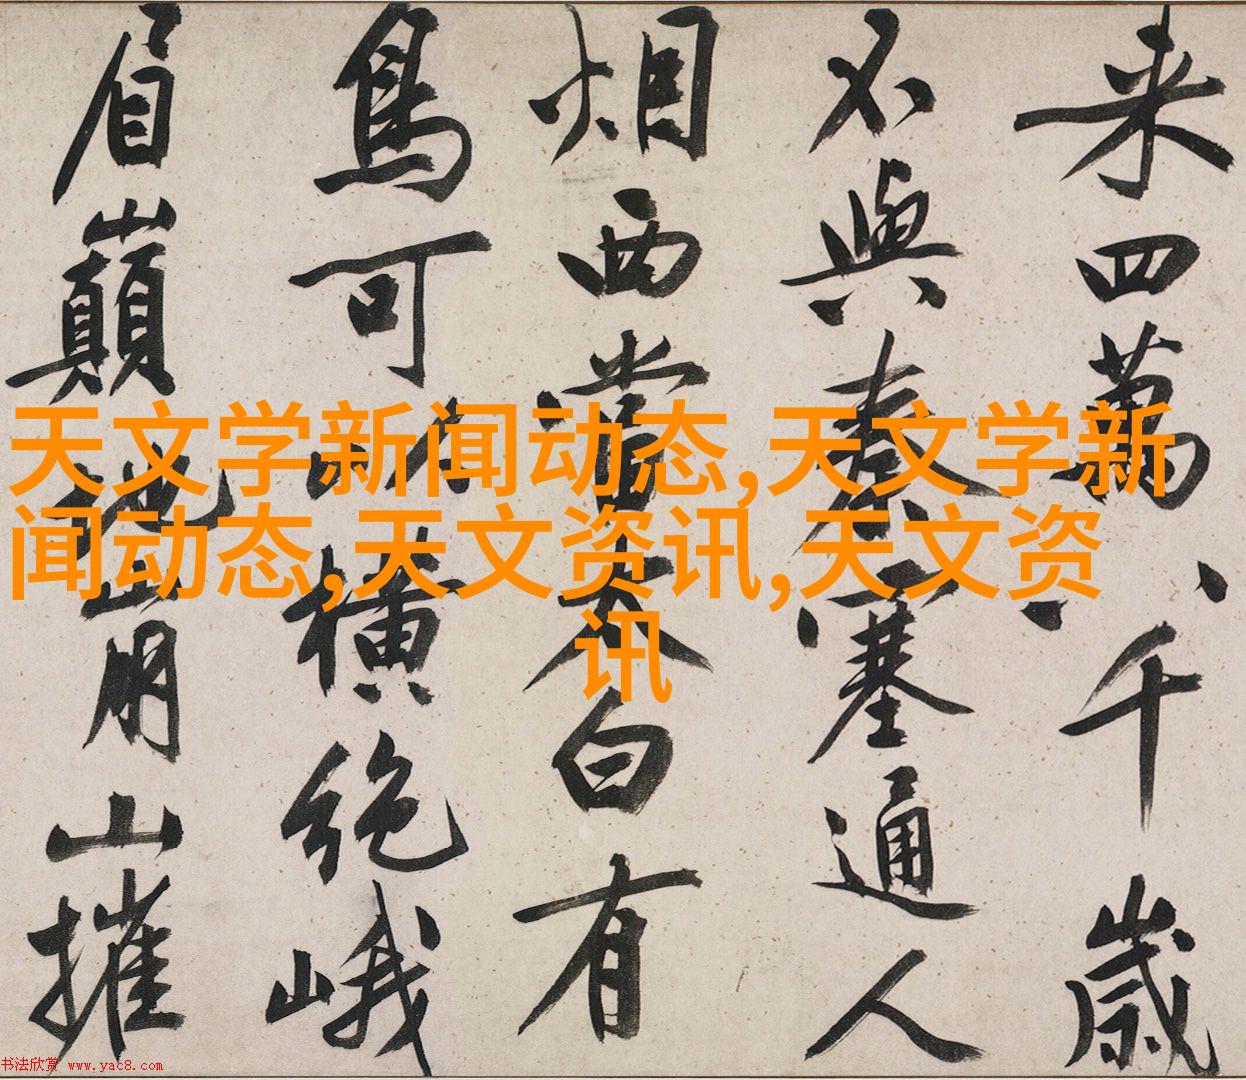 来四萬八千歲
不與秦塞通人
烟西當太白有
鳥可以橫絶峨
眉巔地崩山摧
天文学新闻动态,天文学新
闻动态,天文资讯,天文资
讯
书法欣赏 www.yac8.com